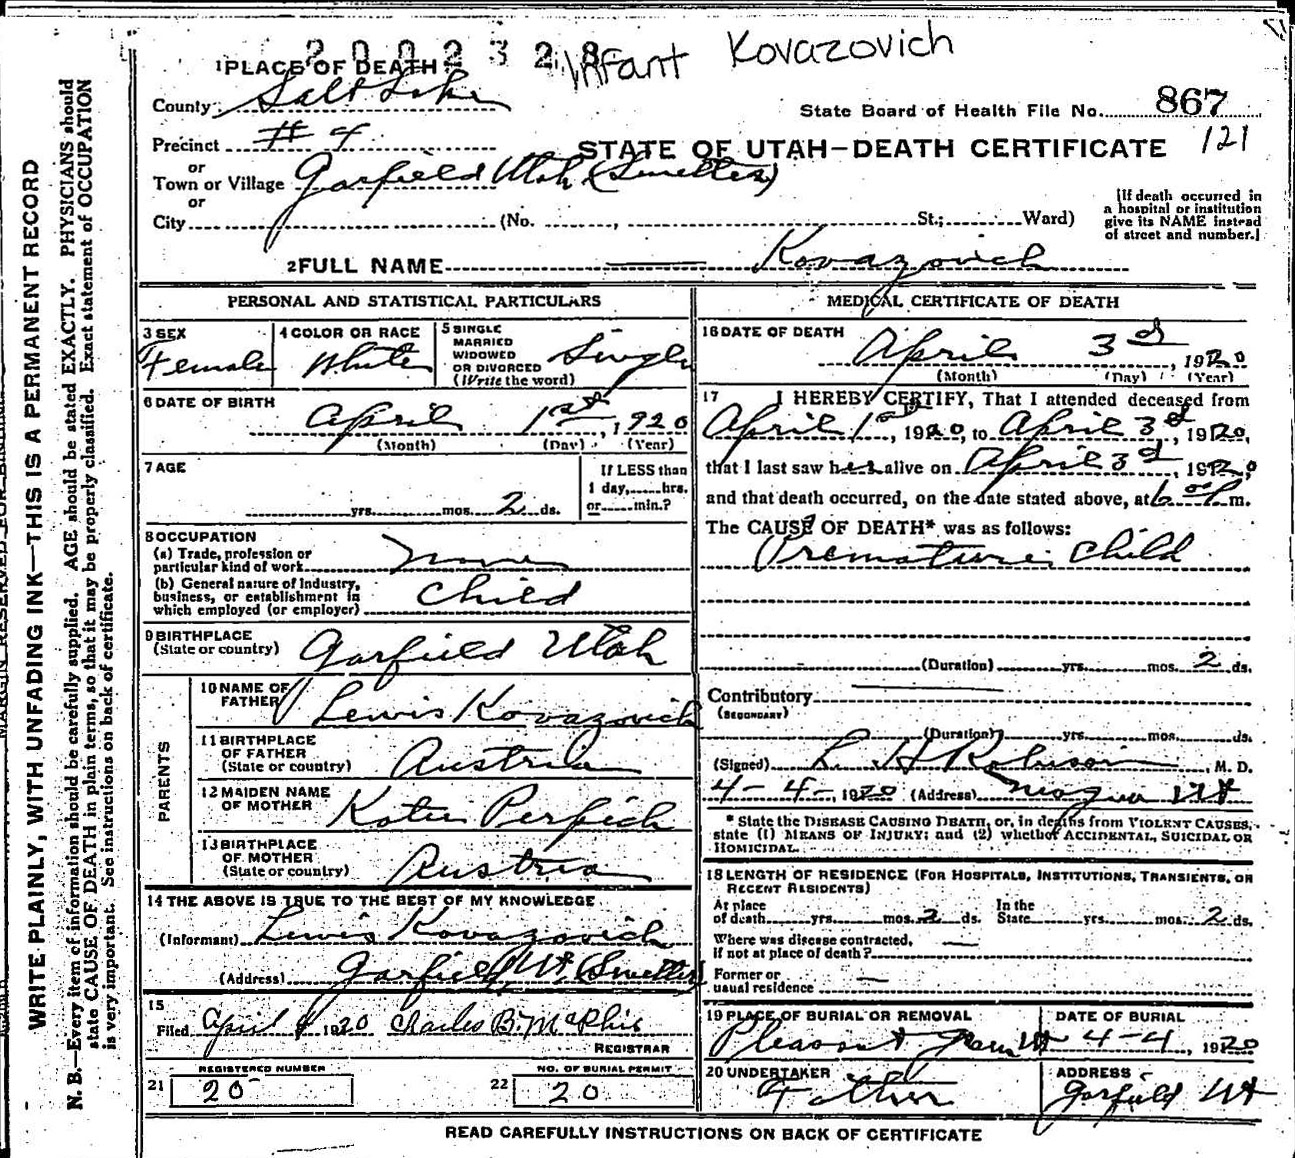 2002328
Infant Kovazovich
1 PLACE OF DEATH
County Salt Lake
State Board of Health File No. 867
121
Precinct # 4
STATE OF UTAH—DEATH CERTIFICATE
or
Town or Village Garfield Utah (Smelter)
or
City (No. , St.; Ward)
[If death occurred in
a hospital or institution
give its NAME instead
of street and number.]
2 FULL NAME Kovazovich
PERSONAL AND STATISTICAL PARTICULARS
3 SEX
Female
4 COLOR OR RACE
White
5 SINGLE
MARRIED
WIDOWED
OR DIVORCED
(Write the word)
Single
6 DATE OF BIRTH
April 1st, 1920
(Month) (Day) (Year)
7 AGE
yrs. mos. 2 ds.
If LESS than
1 day, hrs.
or min.?
8 OCCUPATION
(a) Trade, profession or
particular kind of work None
(b) General nature of Industry,
business, or establishment in
which employed (or employer) Child
9 BIRTHPLACE
(State or country) Garfield Utah
PARENTS
10 NAME OF
FATHER Lewis Kovazovich
11 BIRTHPLACE
OF FATHER
(State or country) Austria
12 MAIDEN NAME
OF MOTHER Katie Perpich
13 BIRTHPLACE
OF MOTHER
(State or country) Austria
14 THE ABOVE IS TRUE TO THE BEST OF MY KNOWLEDGE
(Informant) Lewis Kovazovich
(Address) Garfield, Ut. (Smelter)
15
Filed April 1920 Charles B. McPhie
REGISTRAR
REGISTERED NUMBER
21 20
NO. OF BURIAL PERMIT
22 20
MEDICAL CERTIFICATE OF DEATH
16 DATE OF DEATH
April 3rd, 1920
(Month) (Day) (Year)
17 I HEREBY CERTIFY, That I attended deceased from
April 1st, 1920, to April 3rd, 1920,
that I last saw her alive on April 3rd, 1920
and that death occurred, on the date stated above, at 6 00 P m.
The CAUSE OF DEATH* was as follows:
Premature Child
(Duration) yrs. mos. 2 ds.
Contributory
(SECONDARY)
(Duration) yrs. mos. ds.
(Signed) L H Robinson, M. D.
4-4-, 1920 (Address) Magna Ut
* State the DISEASE CAUSING DEATH, or, in deaths from VIOLENT CAUSES,
state (1) MEANS OF INJURY; and (2) whether ACCIDENTAL, SUICIDAL OR
HOMICIDAL.
18 LENGTH OF RESIDENCE (FOR HOSPITALS, INSTITUTIONS, TRANSIENTS, OR
RECENT RESIDENTS)
At place
of death yrs. mos. 2 ds.
In the
State yrs. mos. 2 ds.
Where was disease contracted,
If not at place of death?
Former or
usual residence
19 PLACE OF BURIAL OR REMOVAL
Pleasant Green Ut
DATE OF BURIAL
4-4, 1920
20 UNDERTAKER
Father
ADDRESS
Garfield Ut
READ CAREFULLY INSTRUCTIONS ON BACK OF CERTIFICATE
MARGIN RESERVED FOR BINDING
WRITE PLAINLY, WITH UNFADING INK—THIS IS A PERMANENT RECORD
N. B.—Every item of information should be carefully supplied. AGE should be stated EXACTLY. PHYSICIANS should
state CAUSE OF DEATH in plain terms, so that it may be properly classified. Exact statement of OCCUPATION
is very important. See instructions on back of certificate.